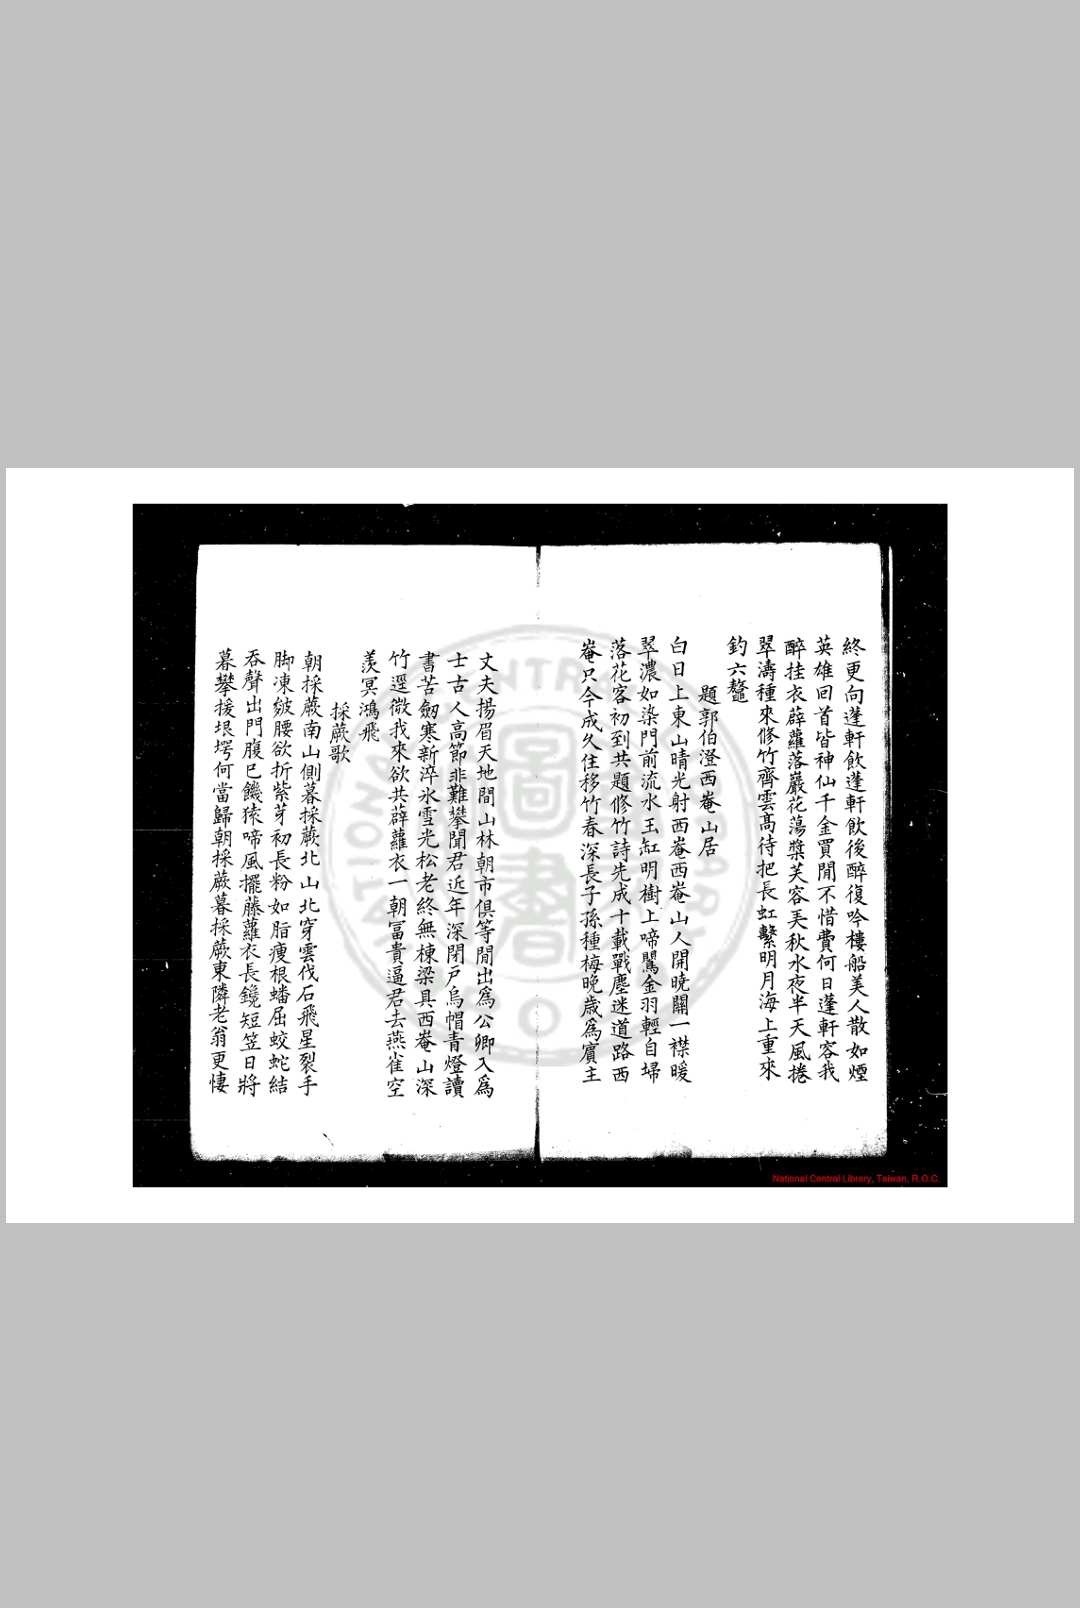 終更向蓬軒飲蓬軒飲後醉復吟樓船美人散如煙
英雄回首皆神仙千金買閒不惜費何日蓬軒容我
醉挂衣薜蘿落巖花蕩槳芙容美秋水夜半天風捲
翠濤種來修竹齊雲髙待把長虹繫明月海上重來
釣六鼇
題郭伯澄西庵山居
白日上東山晴光射西庵西庵山人開曉關一襟暖
翠濃如染門前流水玉缸明樹上啼鶯金羽輕自埽
落花客初到共題修竹詩先成十載戰塵迷道路西
庵只今成久住移竹春深長子孫種梅晚歲爲賓主
丈夫揚眉天地間山林朝市俱等閒出爲公卿入爲
士古人高節非難攀聞君近年深閉戸烏帽青燈讀
書苦劒寒新淬氷雪光松老終無棟梁具西庵山深
竹邐微我來欲共薜蘿衣一朝冨貴逼君去燕雀空
羨冥鴻飛
採蕨歌
朝採蕨南山側暮採蕨北山北穿雲伐石飛星裂手
脚凍皴腰欲折紫芽初長粉如脂瘦根蟠屈蛟蛇結
吞聲出門腹已饑猿啼風擺藤蘿衣長鑱短笠日將
暮攀援垠堮何當歸朝採蕨暮採蕨東隣老翁更悽
National Central Library, Taiwan, R.O.C.